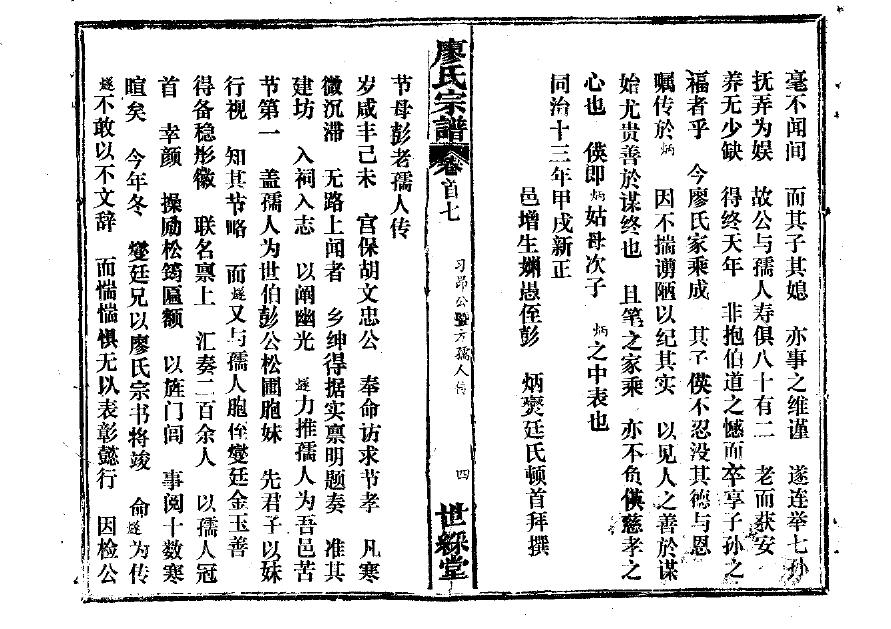 毫不闻间　而其子其媳　亦事之维谨　遂连举七孙
抚弄为娱　故公与孺人寿俱八十有二　老而获安
养无少缺　得终天年　非抱伯道之憾而卒享子孙之
福者乎　今廖氏家乘成　其子偀不忍没其德与恩
嘱传於炳　因不揣谫陋以纪其实　以见人之善於谋
始尤贵善於谋终也　且笔之家乘　亦不负偀慈孝之
心也　偀即炳姑母次子　炳之中表也
同治十三年甲戌新正
邑增生姻愚侄彭　炳燮廷氏顿首拜撰
廖氏宗譜　卷首七　习郧公暨方孺人传　四　世綵堂
节母彭老孺人传
岁咸丰己未　宫保胡文忠公　奉命访求节孝　凡寒
微沉滞　无路上闻者　乡绅得据实禀明题奏　准其
建坊　入祠入志　以阐幽光　燧力推孺人为吾邑苦
节第一　盖孺人为世伯彭公松圃胞妹　先君子以妹
行视　知其节略　而燧又与孺人胞侄燮廷金玉善
得备稳彤徽　联名禀上　汇奏二百余人　以孺人冠
首　幸颜　操励松筠匾额　以旌门闾　事阅十数寒
暄矣　今年冬　燮廷兄以廖氏宗书将竣　命燧为传
燧不敢以不文辞　而惴惴惧无以表彰懿行　因检公